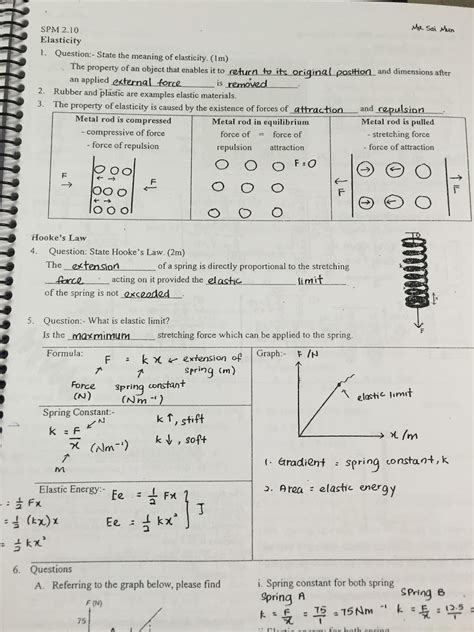 SPM 2.10
Mr Sai Mun
Elasticity
1. Question:- State the meaning of elasticity. (1m)
The property of an object that enables it to return to its original position and dimensions after
an applied external force is removed.
2. Rubber and plastic are examples elastic materials.
3. The property of elasticity is caused by the existence of forces of attraction and repulsion.
Metal rod is compressed
- compressive of force
- force of repulsion
Metal rod in equilibrium
force of = force of
repulsion attraction
Metal rod is pulled
- stretching force
- force of attraction
F
F
F=0
F
F
Hooke's Law
4. Question: State Hooke's Law. (2m)
The extension of a spring is directly proportional to the stretching
force acting on it provided the elastic limit
of the spring is not exceeded.
F
5. Question:- What is elastic limit?
Is the maxmimum stretching force which can be applied to the spring.
Formula:
F = kx ← extension of
spring (m)
Force
(N)
spring constant
(Nm⁻¹)
Graph:- F/N
elastic limit
x/m
Spring Constant:-
k = F/x (Nm⁻¹)
N
m
k↑, stift
k↓, soft
1. Gradient = spring constant, k
2. Area = elastic energy
Elastic Energy:-
Ee = 1/2 Fx
Ee = 1/2 kx²
J
= 1/2 Fx
= 1/2 (kx)x
= 1/2 kx²
6. Questions
A. Referring to the graph below, please find
F (N)
75
i. Spring constant for both spring
Spring A
k = F/x = 75/1 = 75 Nm⁻¹
Spring B
k = F/x = 12.5/1